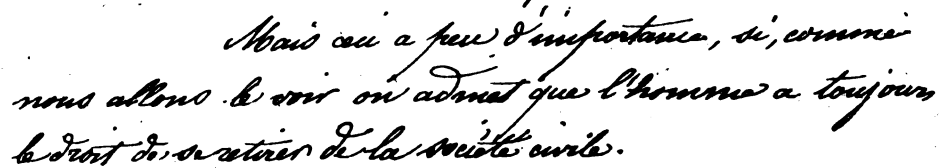 Mais ceci a peu d'importance, si, comme
nous allons le voir on admet que l'homme a toujours
le droit de se retirer de la société civile.